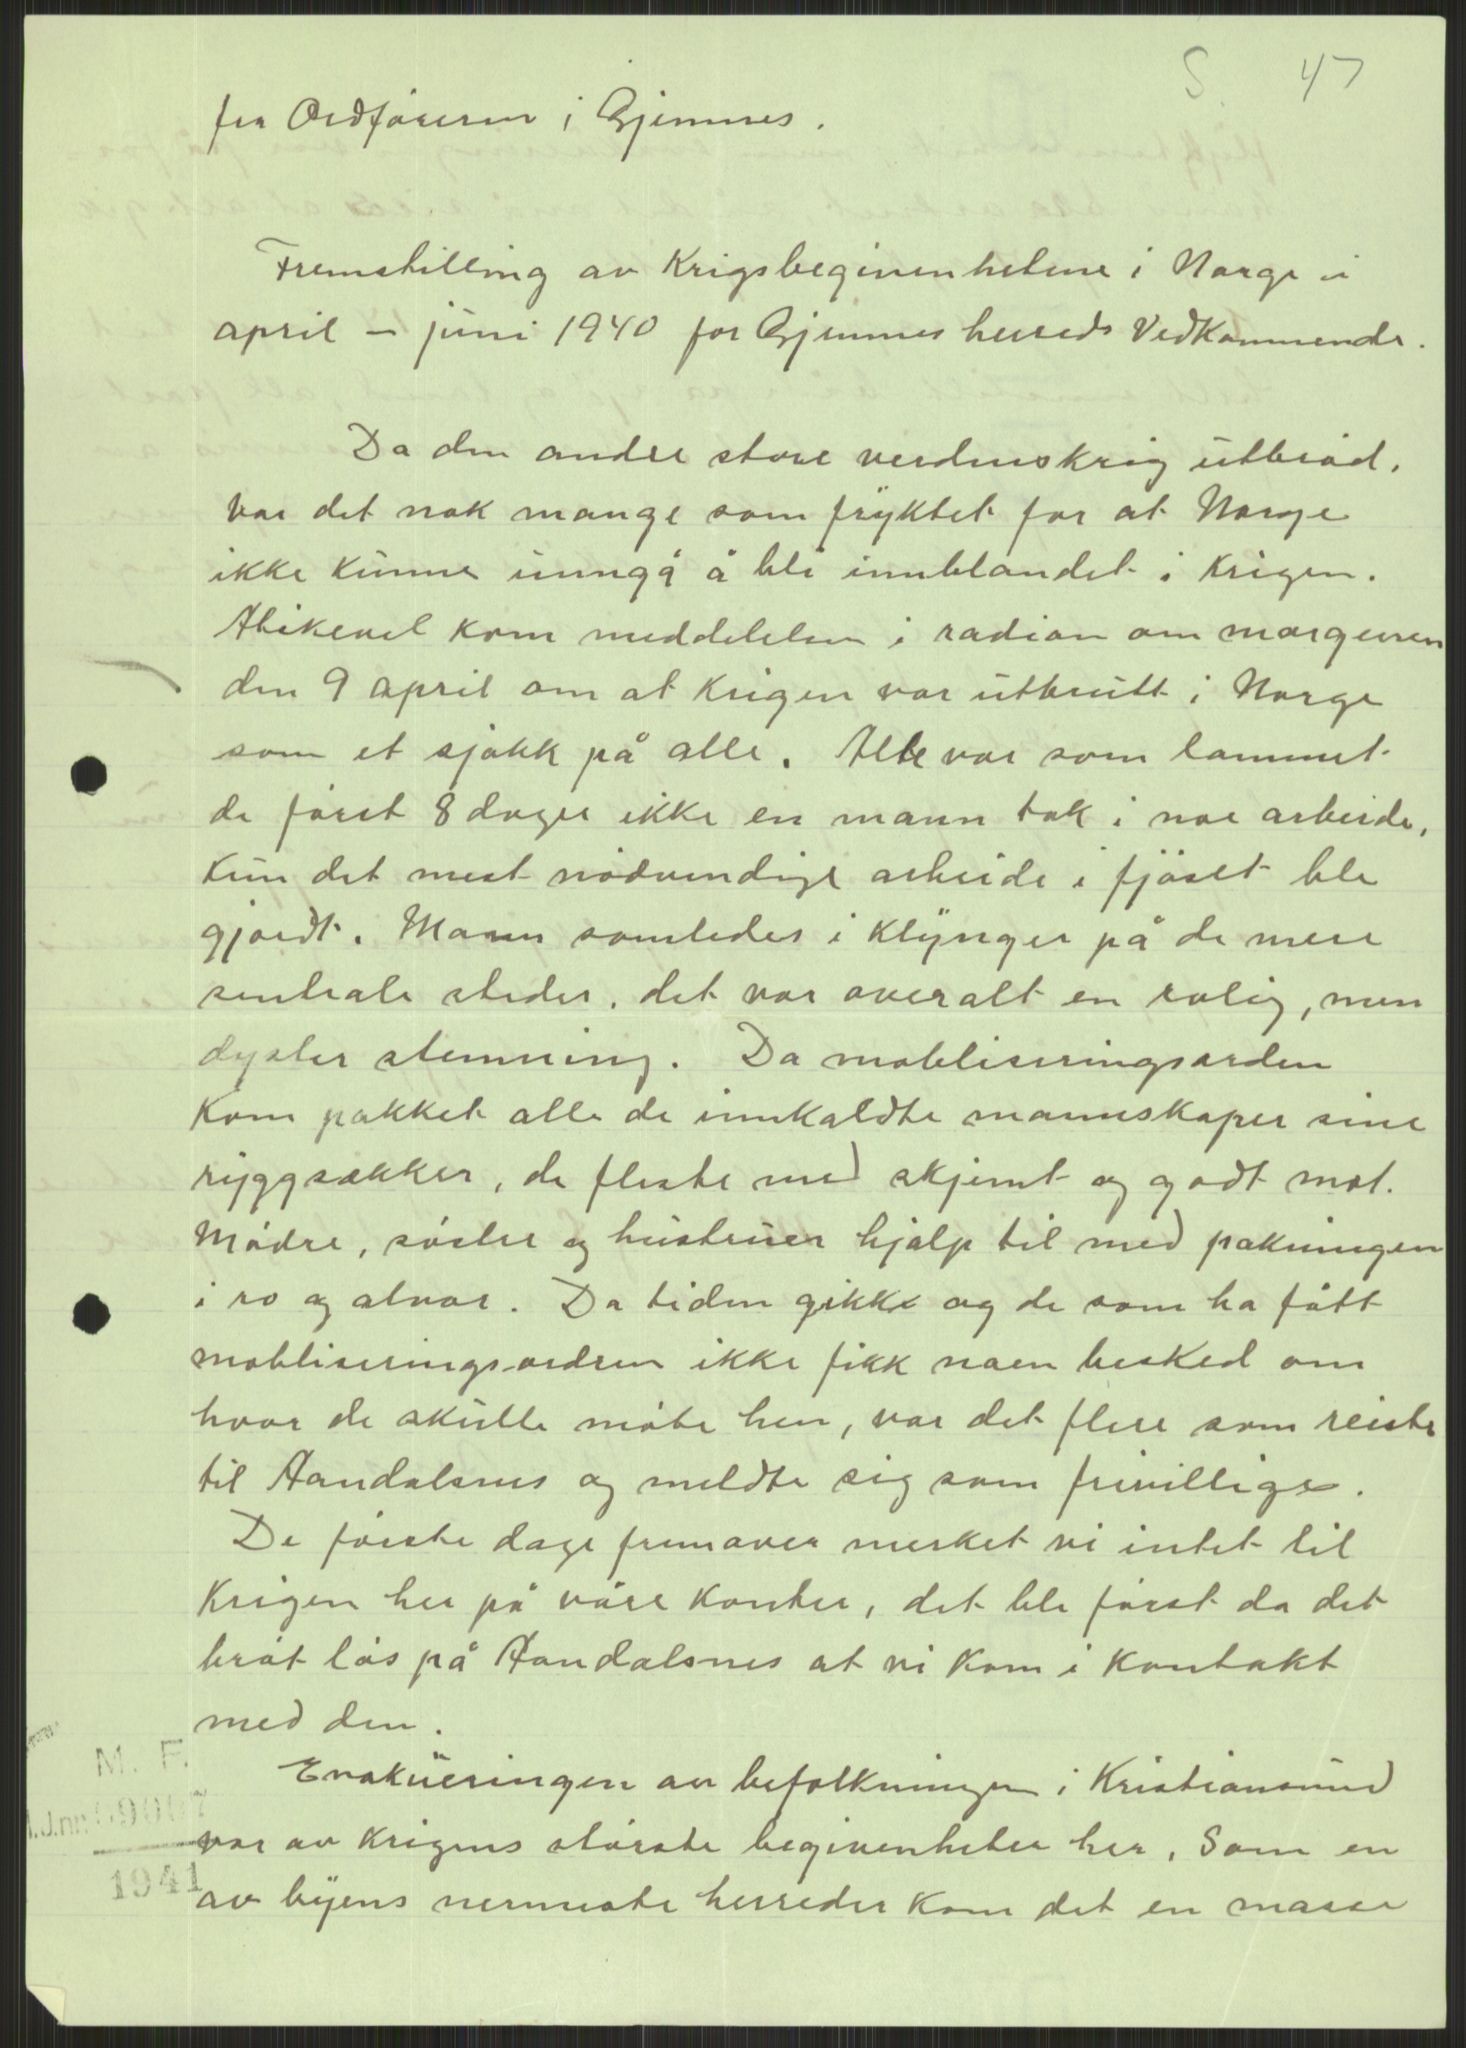 S. 47
fra Ordføreren i Gjemnes.
Fremstilling av Krigsbegivenhetene i Norge i
april – juni 1940 for Gjemnes herreds Vedkommende.
Da den andre store verdenskrig utbrød,
var det nok mange som fryktet for at Norge
ikke kunne unngå å bli innblandet i krigen.
Allikevel kom meddelelsen i radion om morgenen
den 9 april om at krigen var utbrutt i Norge
som et sjokk på alle. Alle var som lammet
de først 8 dager ikke en mann tok i noe arbeide,
kun det mest nødvendige arbeide i fjøset ble
gjordt. Mann samledes i klynger på de mere
sentrale steder, det var overalt en rolig, men
dyster stemning. Da mobliseringsorden
kom pakket alle de innkaldte mannskaper sine
ryggsækker, de fleste med skjemt og godt mot.
Mødre, søstre og hustruer hjalp til med pakningen
i ro og alvor. Da tiden gikk og de som ha fått
mobliseringsordren ikke fikk noen besked om
hvor de skulle møte hen, var det flere som reiste
til Aandalsnes og meldte sig som frivillige.
De første dage fremover merket vi intet til
Krigen her på våre kanter, det ble først da det
brøt løs på Aandalsnes at vi kom i kontakt
med den.
Evakueringen av befolkningen i Kristiansund
var av krigens største begivenheter her. Som en
av byens nermeste herreder kom det en masse
M. F.
J.nr.
1941